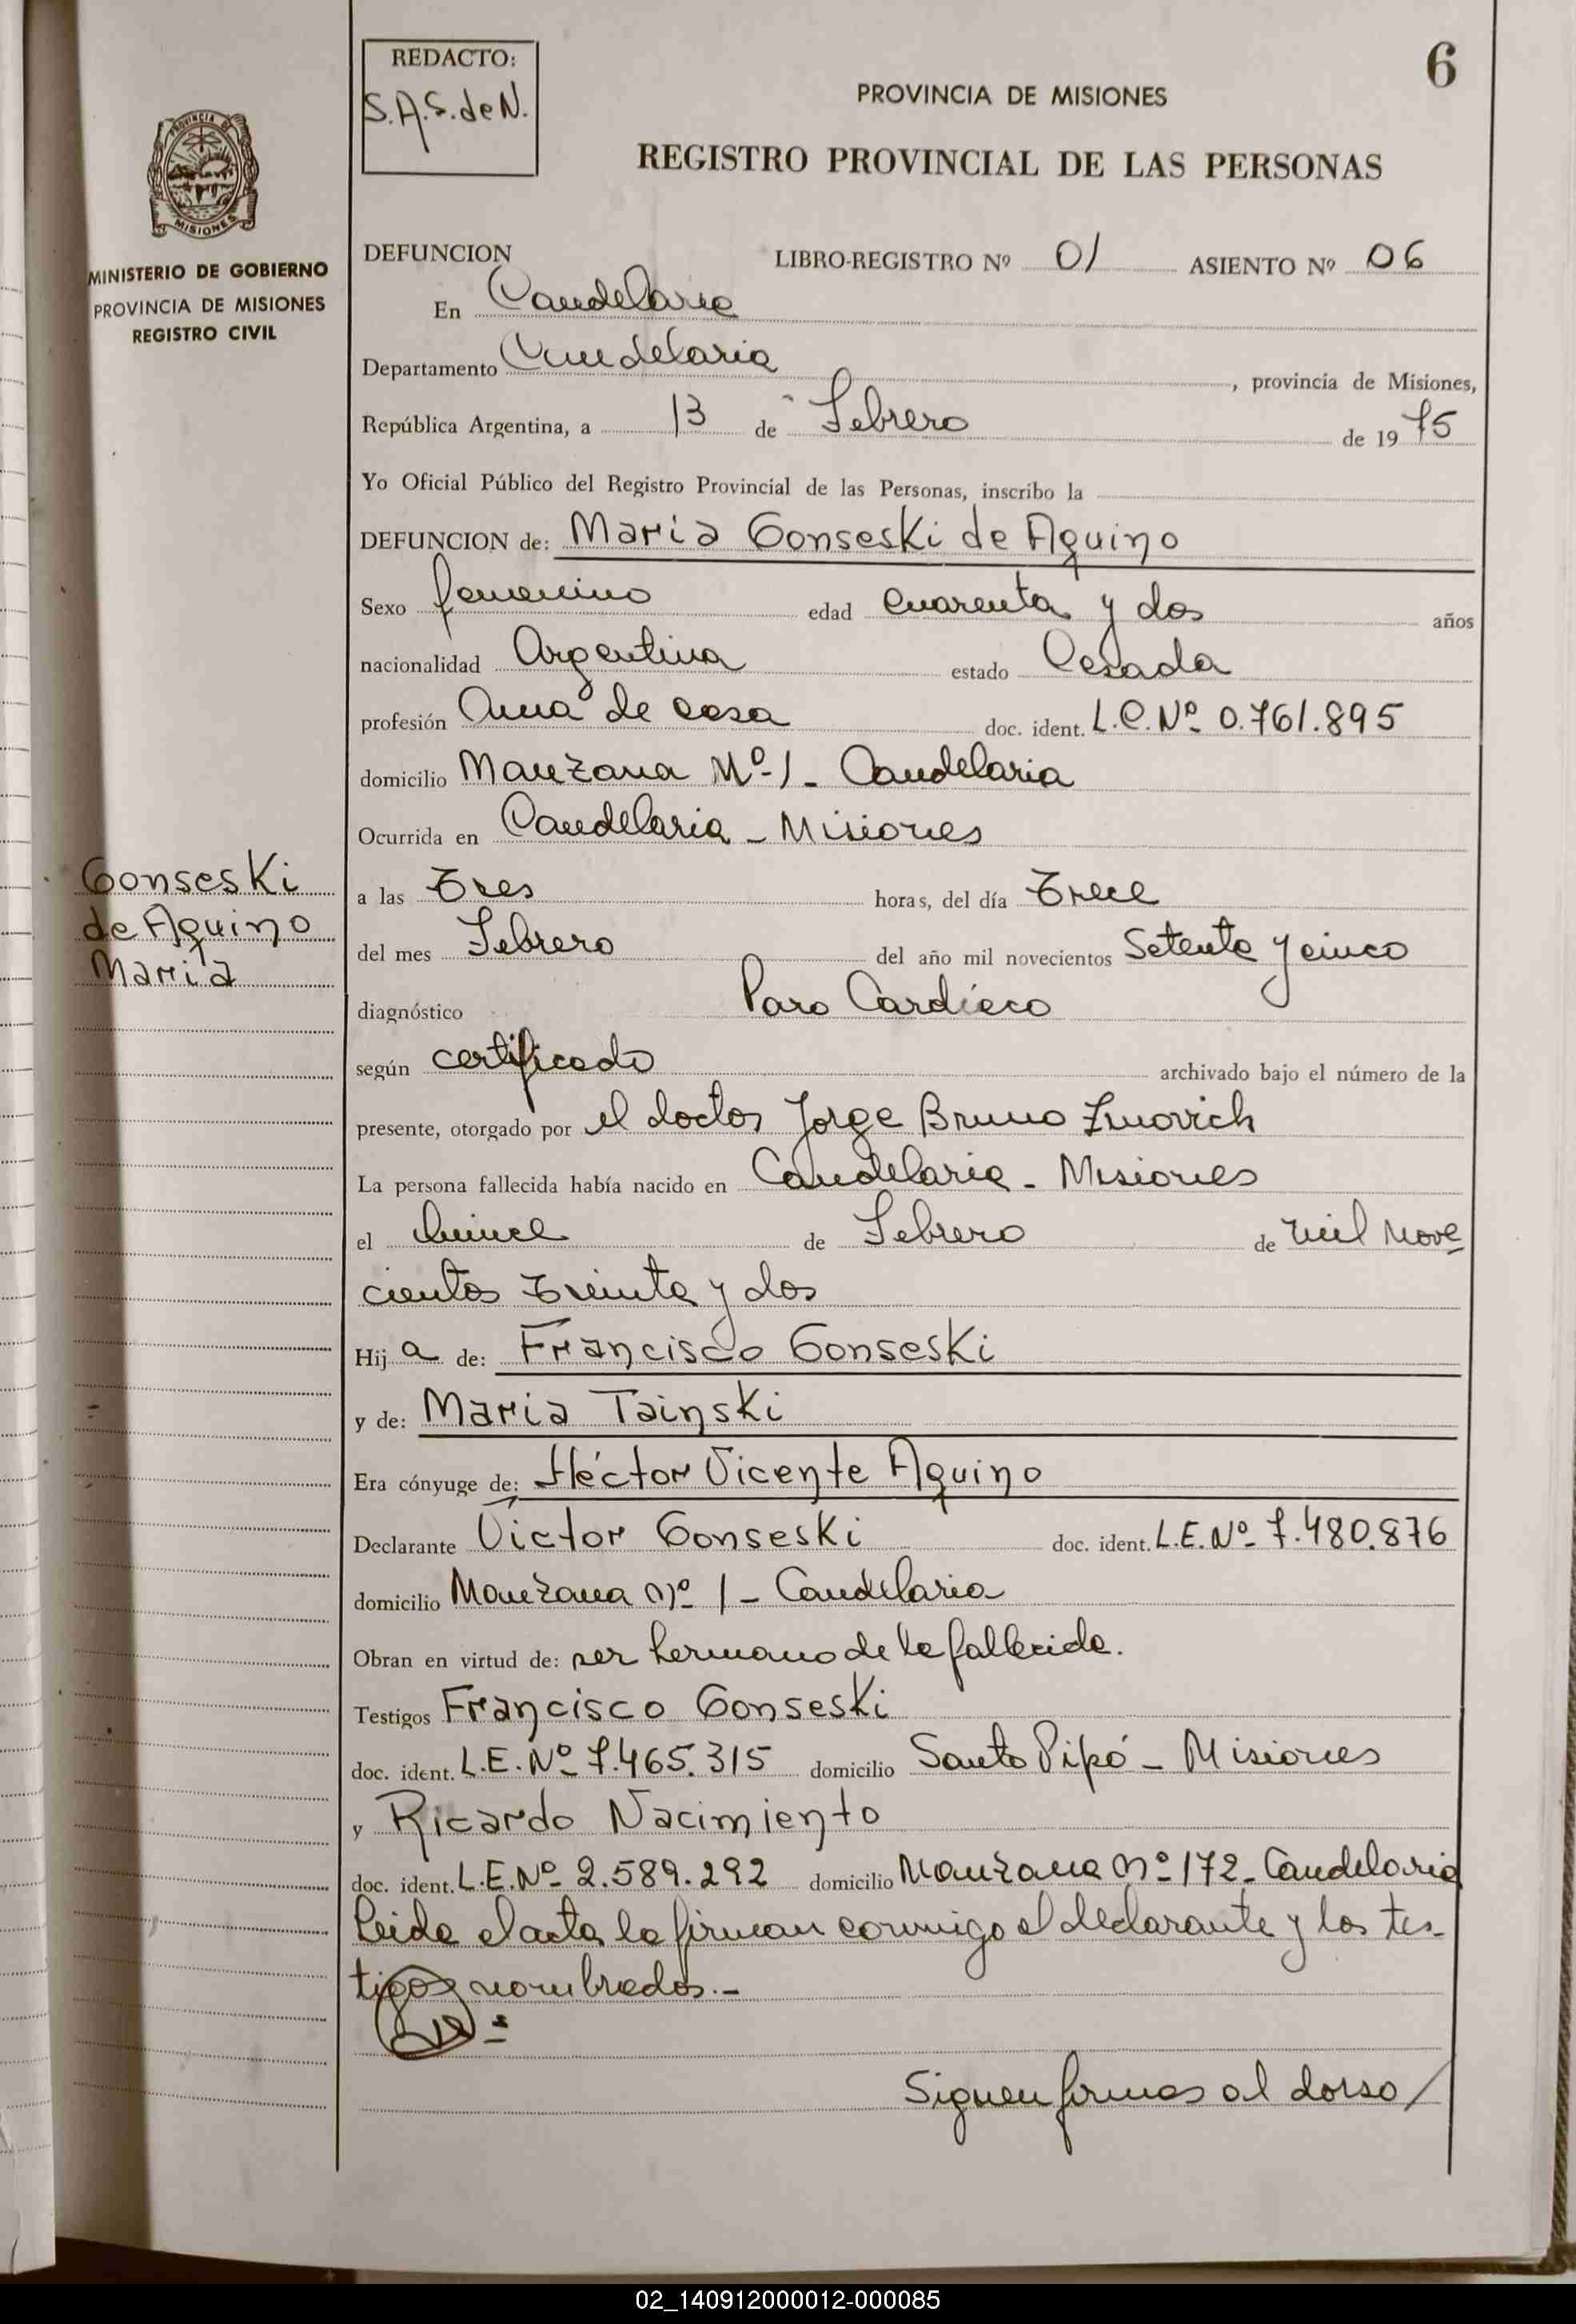 6
REDACTO:
S.A.S. de N.
PROVINCIA DE MISIONES
REGISTRO PROVINCIAL DE LAS PERSONAS
PROVINCIA DE
MISIONES
MINISTERIO DE GOBIERNO
PROVINCIA DE MISIONES
REGISTRO CIVIL
DEFUNCION LIBRO-REGISTRO Nº 01 ASIENTO Nº 06
En Candelaria
Departamento Candelaria, provincia de Misiones,
República Argentina, a 13 de Febrero de 1975
Yo Oficial Público del Registro Provincial de las Personas, inscribo la
DEFUNCION de: Maria Gonseski de Aquino
Sexo femenino edad cuarenta y dos años
nacionalidad Argentina estado Casada
profesión Ama de casa doc. ident. L.C. Nº 0.761.895
domicilio Manzana Nº 1 - Candelaria
Ocurrida en Candelaria - Misiones
Gonseski
de Aquino
Maria
a las Tres horas, del día Trece
del mes Febrero del año mil novecientos Setenta y cinco
diagnóstico Paro Cardíaco
según certificado archivado bajo el número de la
presente, otorgado por el doctor Jorge Bruno Zmovich
La persona fallecida había nacido en Candelaria - Misiones
el Quince de Febrero de mil nove
cientos treinta y dos
Hija de: Francisco Gonseski
y de: Maria Tainski
Era cónyuge de: Héctor Vicente Aquino
Declarante Víctor Gonseski doc. ident. L.E. Nº 7.480.876
domicilio Manzana nº 1 - Candelaria
Obran en virtud de: ser hermano de la fallecida.
Testigos Francisco Gonseski
doc. ident. L.E. Nº 7.465.315 domicilio Santo Pipó - Misiones
y Ricardo Nacimiento
doc. ident. L.E. Nº 2.589.292 domicilio Manzana nº 172 - Candelaria
Leida el acta la firman conmigo el declarante y los tes-
tigos nombrados.-
Siguen firmas al dorso/
02_140912000012-000085